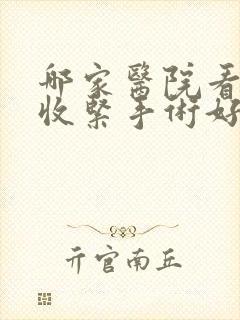 哪家醫院看
收緊手術好
亓官南丘